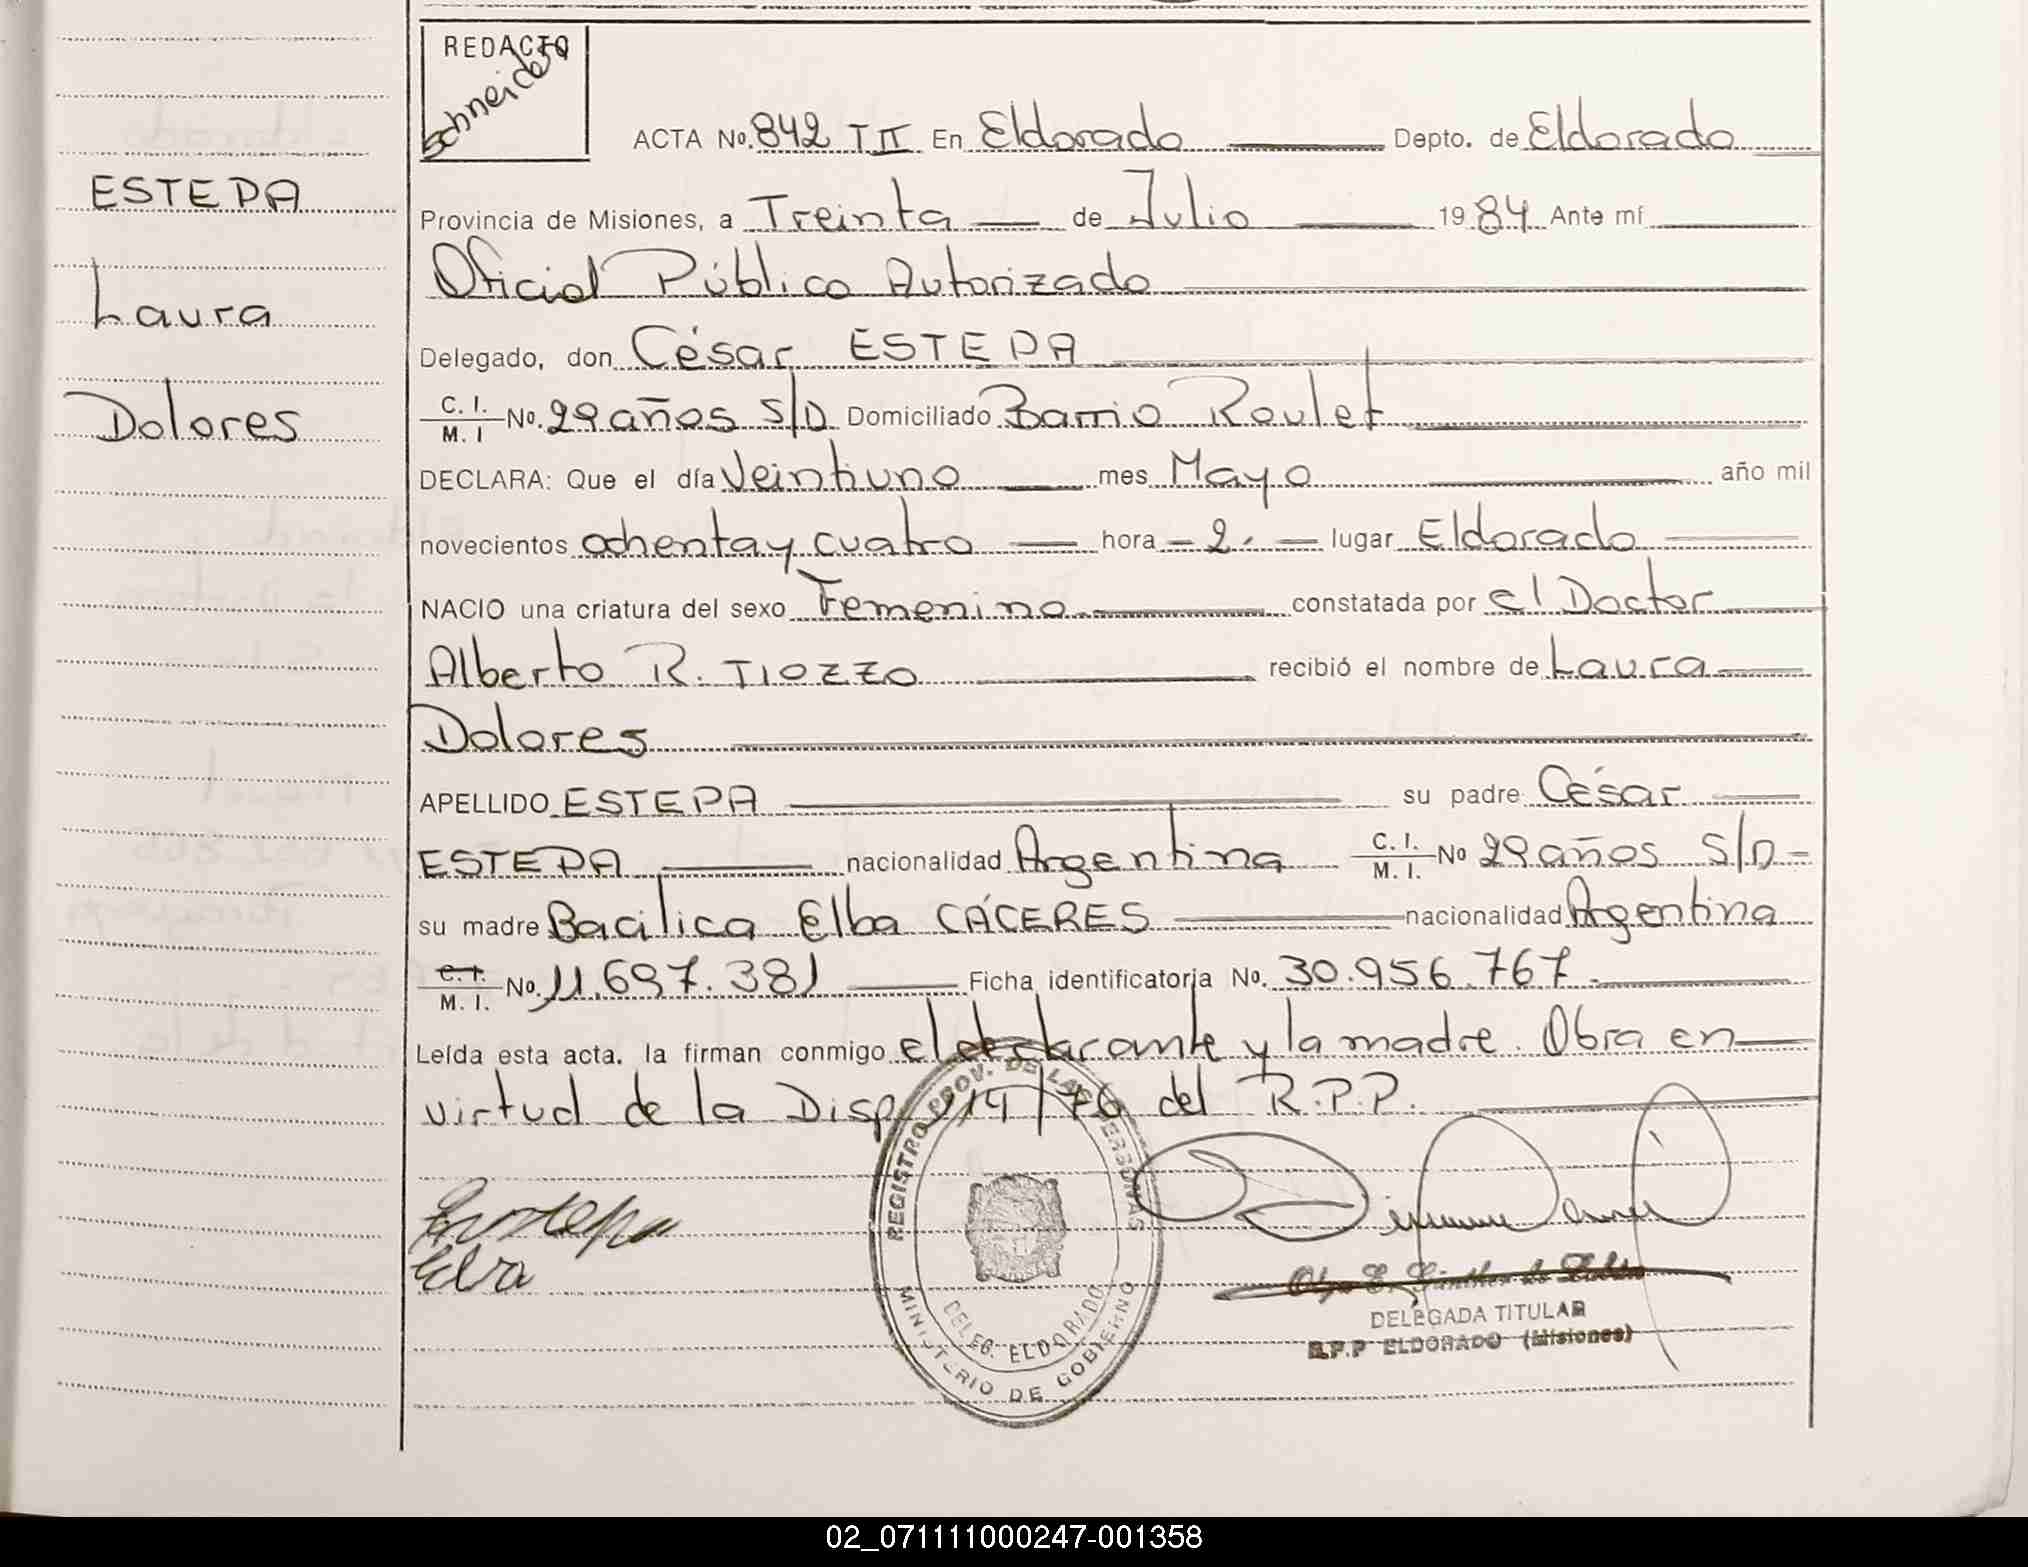 REDACTO
Schneider
ACTA No. 842 T II En Eldorado Depto. de Eldorado
ESTEPA
Laura
Dolores
Provincia de Misiones, a Treinta de Julio 1984 Ante mí
Oficial Público Autorizado
Delegado, don César ESTEPA
C. I. / M. I No. 29 años S/D Domiciliado Barrio Roulet
DECLARA: Que el día Veintiuno mes Mayo año mil
novecientos ochenta y cuatro hora - 2. - lugar Eldorado
NACIO una criatura del sexo Femenino constatada por el Doctor
Alberto R. TIOZZO recibió el nombre de Laura
Dolores
APELLIDO ESTEPA su padre César
ESTEPA nacionalidad Argentina C. I. / M. I. No 29 años S/D -
su madre Bacilica Elba CÁCERES nacionalidad Argentina
C. I. / M. I. No. 11.697.381 Ficha identificatoria No. 30.956.767
Leída esta acta. la firman conmigo el declarante y la madre. Obra en
virtud de la Disp. /76 del R.P.P.
REGISTRO PROV. DE LAS PERSONAS
DELEG. ELDORADO
MINISTERIO DE GOBIERNO
Estepa
Elva
DELEGADA TITULAR
R.P.P ELDORADO (Misiones)
02_071111000247-001358